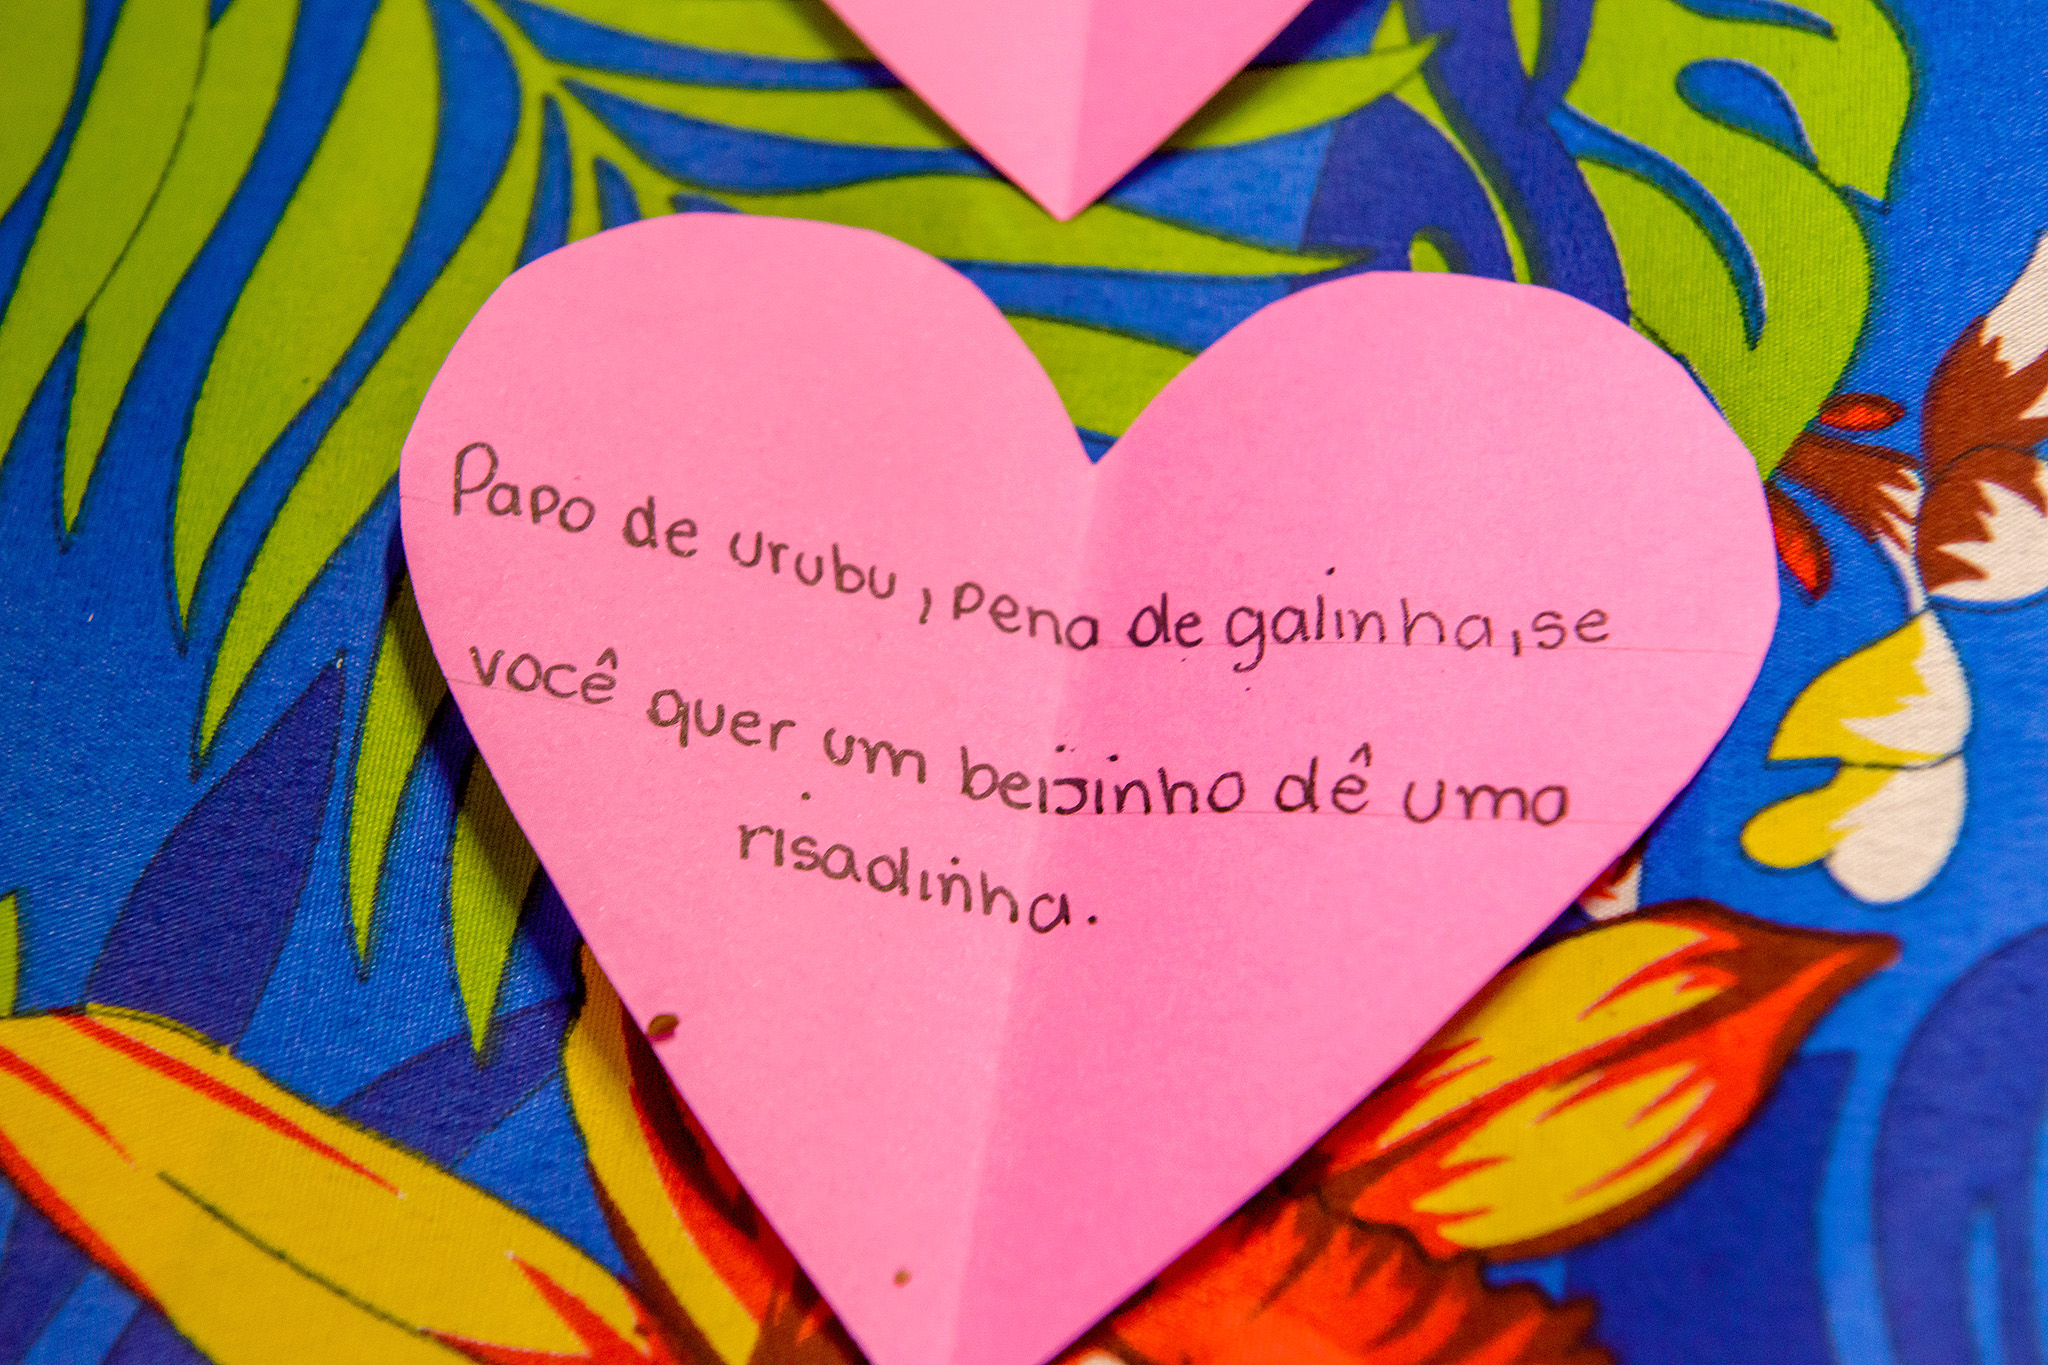 Papo de urubu, pena de galinha, se
você quer um beijinho dê uma
risadinha.